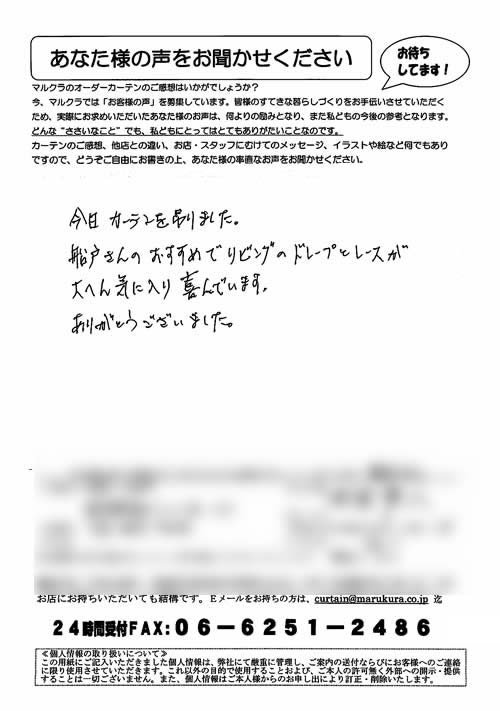 あなた様の声をお聞かせください
お待ち
してます！
マルクラのオーダーカーテンのご感想はいかがでしょうか？
今、マルクラでは「お客様の声」を募集しています。皆様のすてきな暮らしづくりをお手伝いさせていただく
ため、実際にお求めいただいたあなた様のお声は、何よりの励みとなり、また私どもの今後の参考となります。
どんな“ささいなこと”でも、私どもにとってはとてもありがたいことなのです。
カーテンのご感想、他店との違い、お店・スタッフにむけてのメッセージ、イラストや絵など何でもあり
ですので、どうぞご自由にお書きの上、あなた様の率直なお声をお聞かせください。
今日カーテンを吊りました。
船戸さんのおすすめでリビングのドレープとレースが
大へん気に入り喜んでいます。
ありがとうございました。
お店にお持ちいただいても結構です。Eメールをお持ちの方は、curtain@marukura.co.jp 迄
24時間受付FAX:06-6251-2486
≪個人情報の取り扱いについて≫
この用紙にご記入いただきました個人情報は、弊社にて厳重に管理し、ご案内の送付ならびにお客様へのご連絡
に限り使用させていただきます。これ以外の目的で使用することおよび、ご本人の許可無く外部への開示・提供
することは一切ございません。また、個人情報はご本人様からのお申し出により訂正・削除いたします。